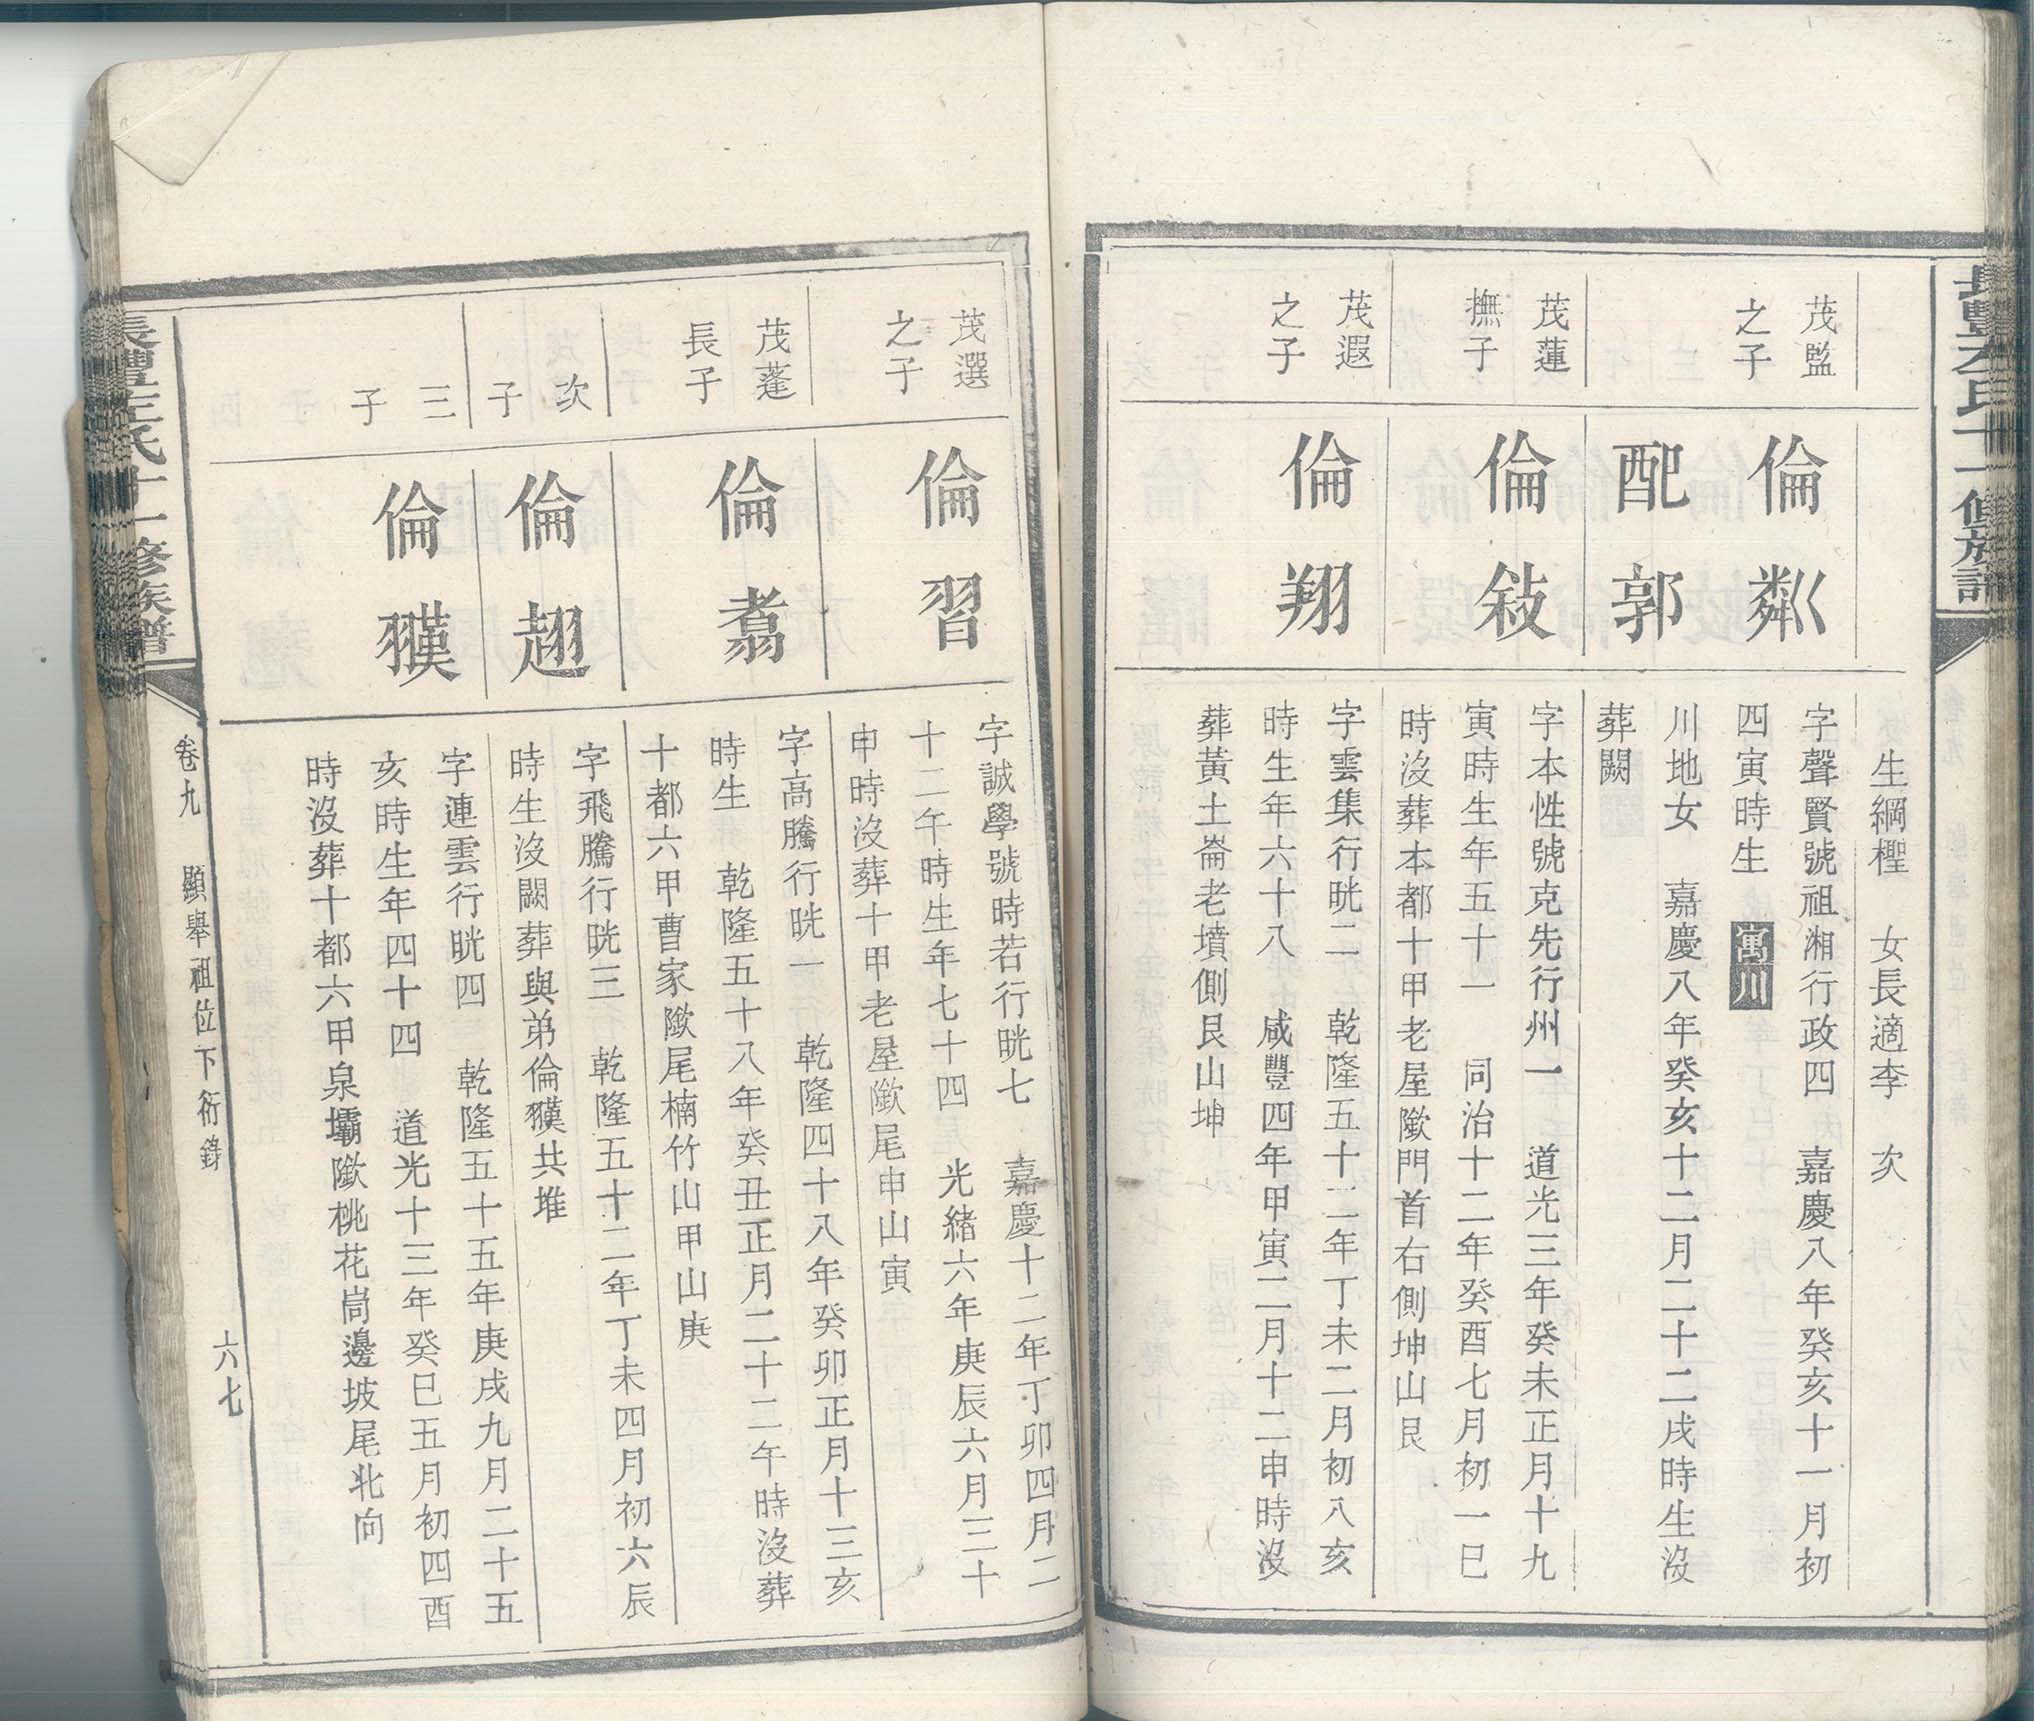 生綱檉　女長適李　次
茂監
之子
倫粼
字聲賢號祖湘行政四　嘉慶八年癸亥十一月初
四寅時生　寓川
配郭
川地女　嘉慶八年癸亥十二月二十二戌時生沒
葬闕
茂蓮
撫子
倫敍
字本性號克先行州一　道光三年癸未正月十九
寅時生年五十一　同治十二年癸酉七月初一巳
時沒葬本都十甲老屋歘門首右側坤山艮
茂遐
之子
倫翔
字雲集行晄二　乾隆五十二年丁未二月初八亥
時生年六十八　咸豐四年甲寅二月十二申時沒
葬黃土崙老墳側艮山坤
茂選
之子
倫習
字誠學號時若行晄七　嘉慶十二年丁卯四月二
十二午時生年七十四　光緒六年庚辰六月三十
申時沒葬十甲老屋歘尾申山寅
茂蓬
長子
倫翥
字高騰行晄一　乾隆四十八年癸卯正月十三亥
時生　乾隆五十八年癸丑正月二十二午時沒葬
十都六甲曹家歘尾楠竹山甲山庚
次
子
倫翅
字飛騰行晄三　乾隆五十二年丁未四月初六辰
時生沒闕葬與弟倫䎬共堆
三
子
倫䎬
字連雲行晄四　乾隆五十五年庚戌九月二十五
亥時生年四十四　道光十三年癸巳五月初四酉
時沒葬十都六甲泉壩歘桃花崗邊坡尾北向
長豐左氏十一修族譜
卷九　顯舉祖位下衍錄
六七